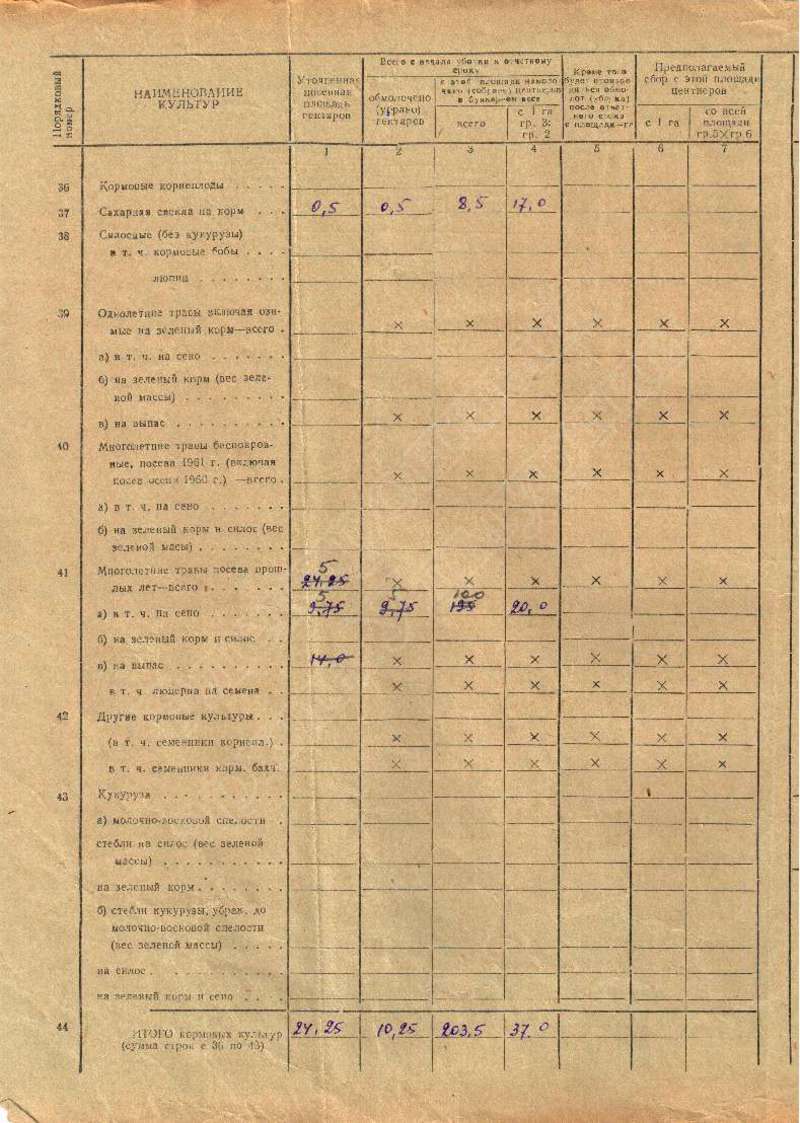 Порядковый номер
НАИМЕНОВАНИЕ КУЛЬТУР
Уточненная посевная площадь гектаров
Всего с начала уборки к отчетному сроку
обмолочено (убрано) гектаров
с этой площади намолочено (собрано) центнеров в бункерном весе
всего
с 1 га гр. 3: гр. 2
Кроме того будет производиться обмолот (уборка) после отчетного срока с площади—га
Предполагаемый сбор с этой площади центнеров
с 1 га
со всей площади гр.5×гр.6
1 2 3 4 5 6 7
36 Кормовые корнеплоды . . . . .
37 Сахарная свекла на корм . . . 0,5 0,5 8,5 17,0
38 Силосные (без кукурузы)
в т. ч. кормовые бобы . . . .
люпин . . . . . . .
39 Однолетние травы включая ози-
мые на зеленый корм—всего . × × × × × ×
а) в т. ч. на сено . . . . . . .
б) на зеленый корм (вес зеле-
ной массы) . . . . . . . . .
в) на выпас . . . . . . . . . . × × × × × ×
40 Многолетние травы беспокров-
ные, посева 1961 г. (включая
посев осени 1960 г.) —всего . × × × × × ×
а) в т. ч. на сено . . . . . . .
б) на зеленый корм и силос (вес
зеленой масы) . . . . . . . .
5
41 Многолетние травы посева прош-
лых лет—всего . . . . . . 24,25 × × × × × ×
5 5 100
а) в т. ч. на сено . . . . . . . 9,75 9,75 195 20,0
б) на зеленый корм и силос . .
в) на выпас . . . . . . . . . . 14,0 × × × × × ×
в т. ч. люцерна на семена . . × × × × × ×
42 Другие кормовые культуры . . .
(в т. ч. семенники корнепл.) . × × × × × ×
в т. ч. семенники корм. бахч. × × × × × ×
43 Кукуруза . . . . . . . . . . .
а) молочно-восковой спелости .
стебли на силос (вес зеленой
массы) . . . . . . . . . . .
на зеленый корм . . . . . . . .
б) стебли кукурузы, убран. до
молочно-восковой спелости
(вес зеленой массы) . . . . .
на силос . . . . . . . . . . .
на зеленый корм и сено . . . .
44 ИТОГО кормовых культур 24,25 10,25 203,5 37,0
(сумма строк с 36 по 43)